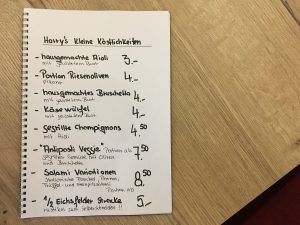 Harry's Kleine Köstlichkeiten
- hausgemachte Aioli 3.-
mit geröstetem Brot
- Portion Riesenoliven 4.-
pikant
- hausgemachtes Bruschetta 4.-
mit geröstetem Brot
- Käsewürfel 4.-
mit geröstetem Brot
- gegrillte Champignons 4.50
mit Aioli
- "Antipasti Veggie" Portion ab 7.50
gegrilltes Gemüse mit Oliven
und Bruschetta
- Salami Variationen 8.50
Italienische Fenchel, Parma,
Trüffel- und
Portion ab
- 1/2 Eichsfelder Stracke 5.-
rustikal zum Selberschneiden !!